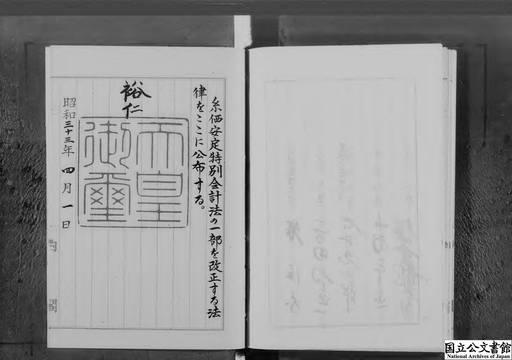 糸価安定特別会計法の一部を改正する法
律をここに公布する。
裕仁
天皇
御璽
昭和三十三年四月一日
内閣
国立公文書館
National Archives of Japan